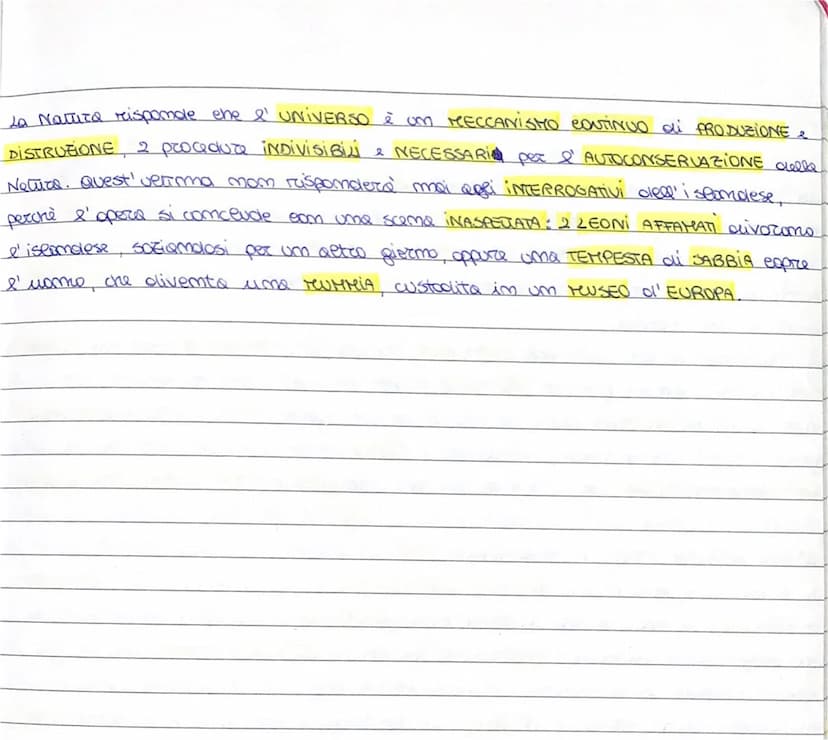 La Natura risponde che l'UNIVERSO è un MECCANISMO CONTINUO di PRODUZIONE e
DISTRUZIONE, 2 procedure INDIVISIBILI e NECESSARI per l'AUTOCONSERVAZIONE della
Natura. Quest'ultima non risponderà mai agli INTERROGATIVI dell'islandese,
perchè l'opera si conclude con una scena INASPETTATA: 2 LEONI AFFAMATI divorano
l'islandese, saziandosi per un altro giorno, oppure una TEMPESTA di SABBIA copre
l'uomo, che diventa una MUMMIA, custodita in un MUSEO d'EUROPA.